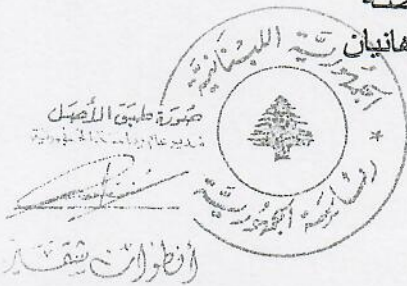 هانيان
الجمهورية اللبنانية
رئاسة الجمهورية
صورة طبق الأصل
مدير عام رئاسة الجمهورية
أنطوان شقير